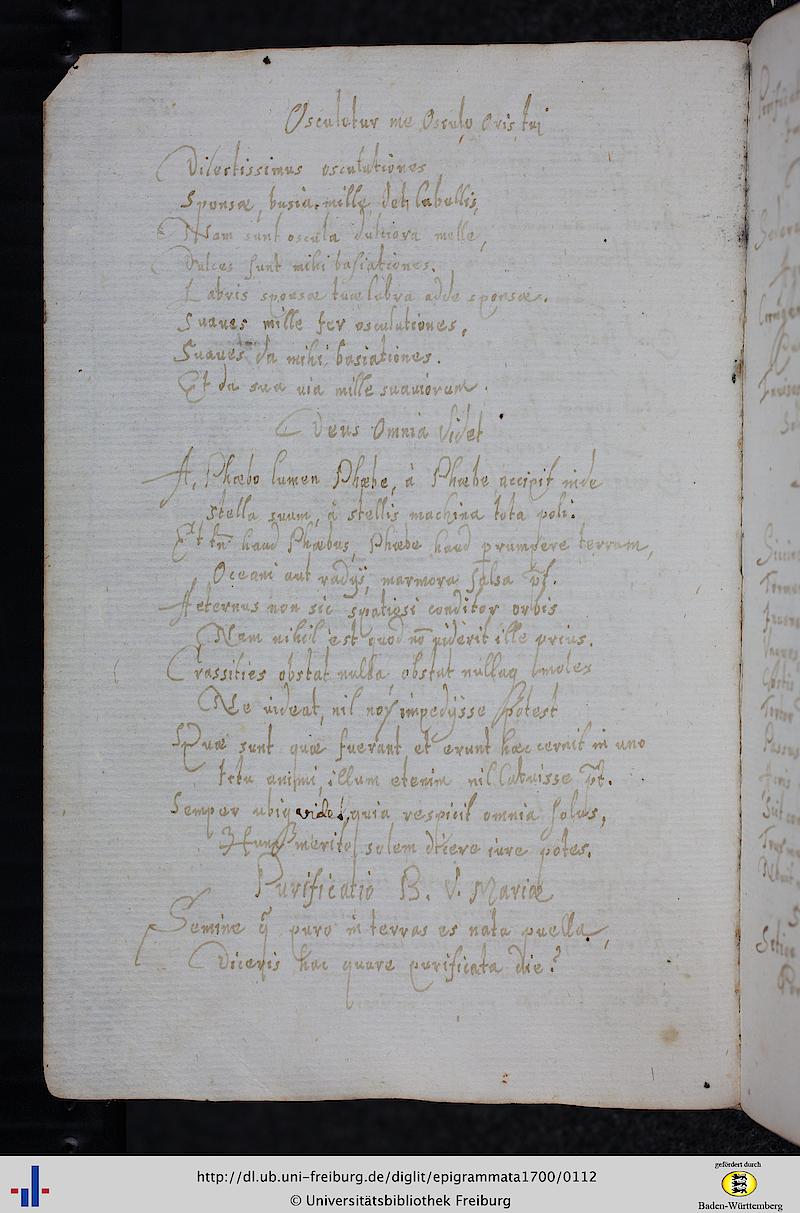 Osculetur me Osculo Oris tui
Dilectissimus osculationes
Sponsæ, basia mille det labellis,
Nam sunt oscula dulciora melle,
Dulces sunt mihi basiationes.
Labris sponsæ tuæ labra adde sponsæ.
Suaves mille fer osculationes,
Suaves da mihi basiationes.
Et da sua via mille suaviorum.
Deus Omnia Videt
A, Phœbo lumen Phœbe, à Phœbe accipit inde
stella suum, à stellis machina tota poli.
Et tn̄ haud Phœbus, Phœbe haud prumpere terram,
Oceani aut radijs, marmora salsa pt̄.
Aeternus non sic spatiosi conditor orbis
Nam nihil est quod nō viderit ille prius.
Crassities obstat nulla, obstat nullaq moles
Ne videat, nil impedijsse potest
Quæ sunt quæ fuerant et erunt hæc cernit in uno
animi, illum etenim nil latuisse pt̄.
Semper ubiq videt, quia respicit omnia solus,
Hunc merito solem dicere iure potes.
Purificatio B. V. Mariæ
Semine q̄ puro in terras es nata puella,
Diceris hac quare purificata die?
http://dl.ub.uni-freiburg.de/diglit/epigrammata1700/0112
© Universitätsbibliothek Freiburg
gefördert durch
Baden-Württemberg